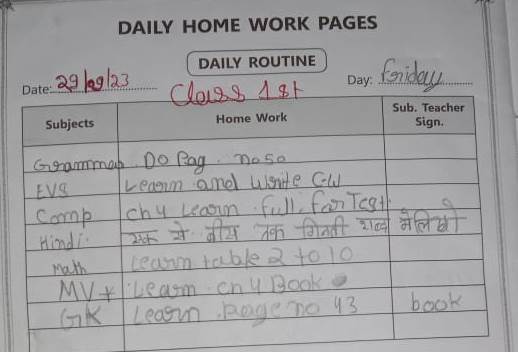 DAILY HOME WORK PAGES
DAILY ROUTINE
Date: 29/09/23 Day: Friday
Class 1st
Subjects Home Work Sub. Teacher Sign.
Grammar Do Pag no 50
EVS Learn and Write C.W
Comp ch 4 Learn full for Test
Hindi एक से बीस तक गिनती शब्द में लिखो
Math Learn table 2 to 10
MV Learn ch 4 Book
GK Learn page no 43 book